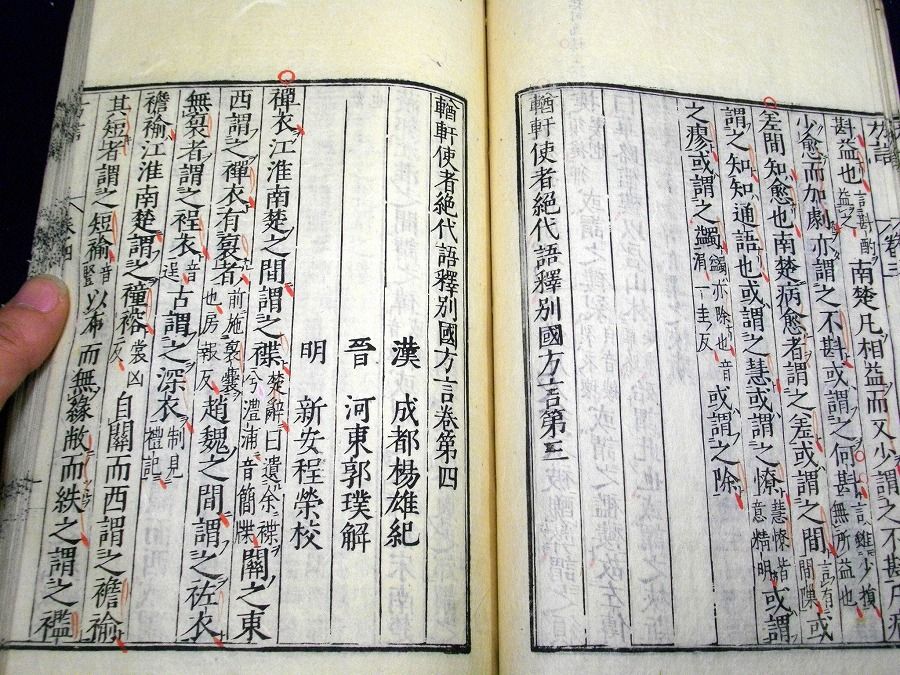 斟益也言斟酌益之南楚凡相益而又少謂之不斟凡病
少愈而加劇亦謂之不斟或謂之何斟言雖少損無所益也
差間知愈也南楚病愈者謂之差或謂之間言有間隙或
謂之知知通語也或謂之慧或謂之憭慧憭皆意精明或謂
之瘳或謂之蠲蠲亦除也音涓一圭反或謂之除
輶軒使者絕代語釋別國方言第三
輶軒使者絕代語釋別國方言卷第四
漢 成都楊雄紀
晉 河東郭璞解
明 新安程榮校
襌衣江淮南楚之間謂之褋楚辭曰遺余褋兮澧浦音簡牒關之東
西謂之襌衣有裒者前施裒囊也房報反趙魏之間謂之袏衣
無裒者謂之裎衣音逞古謂之深衣制見禮記
襜褕江淮南楚謂之䆚裕裳凶反自關而西謂之襜褕
其短者謂之短褕音豎以布而無緣敝而紩之謂之襤